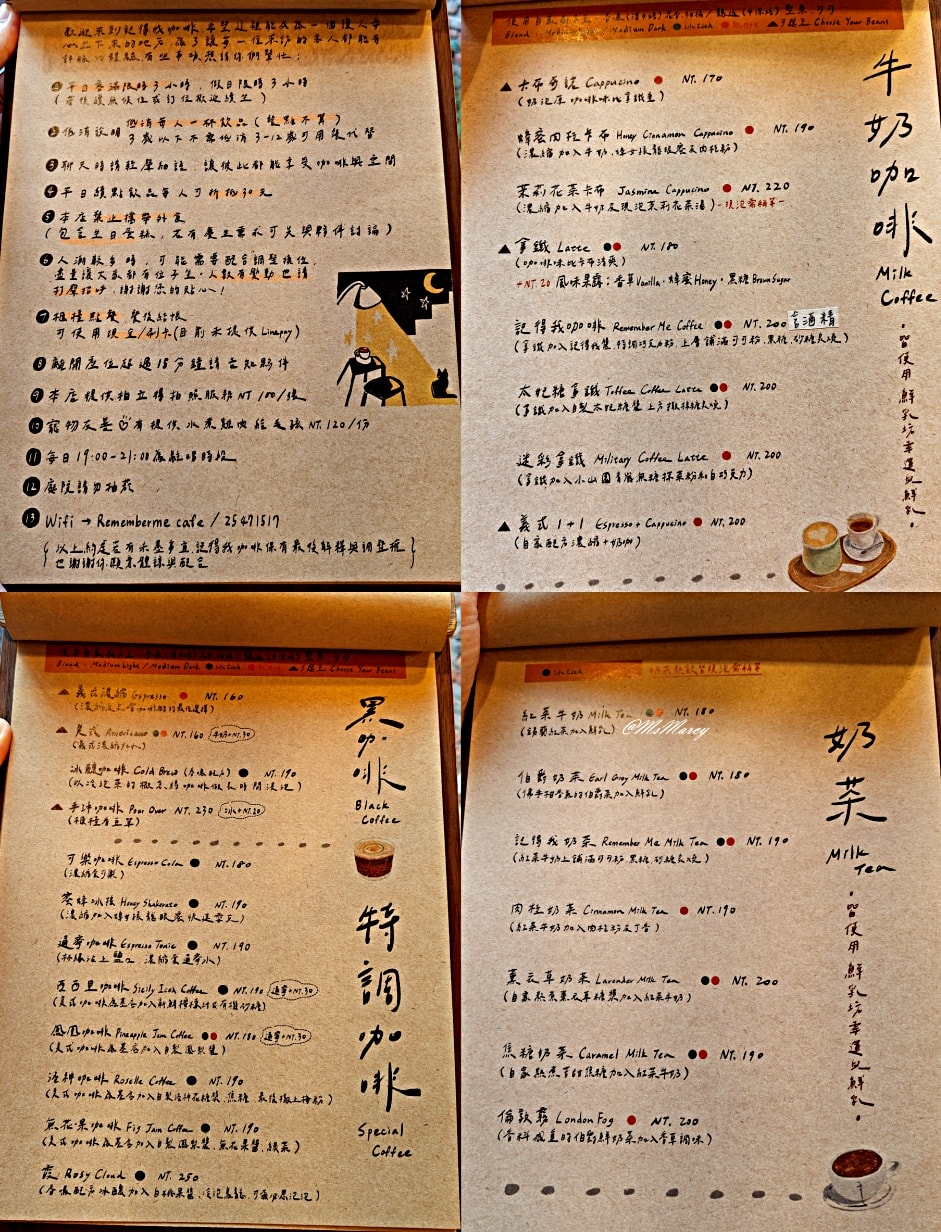 歡迎來到記得我咖啡 希望這裡能成為一個讓人每
以上下來的地方 為了讓每一位來訪的客人都能有
舒服的體驗 有些事項想請你們幫忙:
① 平日客滿限時3小時, 假日限時3小時
(若後續無候位或訂位歡迎續坐)
② 低消說明 低消每人一杯飲品 (餐點不算)
3歲以下不需低消 3-12歲可用餐代替
③ 聊天時請輕聲細語, 讓彼此都能享受咖啡與空間
④ 平日續點飲品每人可折抵30元
⑤ 本店禁止攜帶外食
(包含生日蛋糕, 若有慶生需求可先與夥伴討論)
⑥ 人潮較多時, 可能需要配合調整換位,
盡量讓大家都有位子坐, 人數有變動也請
打聲招呼, 謝謝您的貼心!
⑦ 櫃檯點餐, 餐後結帳
可使用現金/刷卡(目前未提供Linepay)
⑧ 離開座位超過15分鐘請告知夥伴
⑨ 本店提供拍立得拍照服務 NT 100/張
⑩ 寵物友善 有提供水煮雞肉能毛孩 NT. 120/份
⑪ 每日 19:00-21:00 為駐唱時段
⑫ 庭院請勿抽菸
⑬ Wifi → Rememberme cafe / 25471517
{ 以上約定若有未盡事宜, 記得我咖啡保有最後解釋與調整權
也謝謝你願意體諒與配合 }
Blend - Medium Light / Medium Dark ● Us Iceh ▲ 可換豆 Choose Your Beans
牛奶咖啡
Milk Coffee
·皆使用鮮乳坊幸運兒鮮乳·
▲ 卡布奇諾 Cappucino ● NT. 170
(奶泡厚 咖啡味比拿鐵重)
蜂蜜肉桂卡布 Honey Cinnamon Cappucino ● NT. 190
茉莉花茶卡布 Jasmine Cappucino ● NT. 220
(濃縮加入牛奶及現泡茉莉花茶湯) -現泡需稍等-
▲ 拿鐵 Latte ●● NT. 180
(咖啡味比卡布清爽)
+NT. 20 風味果露: 香草Vanilla · 蜂蜜Honey · 黑糖Brown Sugar
記得我咖啡 Remember Me Coffee ●● NT. 200 含酒精
(拿鐵加入記得我醬, 特調巧克力粉, 上層鋪滿可可粉, 黑糖, 砂糖炙燒)
太妃糖拿鐵 Toffee Coffee Latte ●● NT. 200
(拿鐵加入自製太妃糖醬 上方撒棕糖炙燒)
迷彩拿鐵 Military Coffee Latte ●● NT. 200
(拿鐵加入小山園青嵐無糖抹茶粉和白巧克力)
▲ 義式 1+1 Espresso + Cappucino ● NT. 200
(自家配方濃縮+奶咖)
Blend - Medium Light / Medium Dark ● Us Iceh ▲ 可換豆 Choose Your Beans
黑咖啡
Black Coffee
▲ 義式濃縮 Espresso ● NT. 160
▲ 美式 Americano ●● NT. 160 (牛奶+NT.30)
(義式濃縮加水)
冰釀咖啡 Cold Brew (春嶺配方) ● NT. 190
▲ 手沖咖啡 Pour Over NT. 230 (冰+NT.20)
(櫃檯看豆單)
特調咖啡
Special Coffee
可樂咖啡 Espresso Cola ● NT. 180
(濃縮氣可樂)
蜜蜂冰後 Honey Shakerato ● NT. 190
通寧咖啡 Espresso Tonic ● NT. 190
(杯緣沾上鹽口, 濃縮氣通寧水)
西西里咖啡 Sicily Iced Coffee ● NT. 190 (通寧+NT.30)
(美式咖啡為基合加入新鮮檸檬汁及有機砂糖)
鳳鳳咖啡 Pineapple Jam Coffee ●● NT. 180 (通寧+NT.30)
(美式咖啡為基合加入自製鳳梨醬)
洛神咖啡 Roselle Coffee ● NT. 190
(美式咖啡為基合加入自製洛神花糖漿, 焦糖, 最後撒上梅粉)
無花果咖啡 Fig Jam Coffee ● NT. 190
(美式咖啡為基合加入自製鳳梨醬, 無花果醬, 綠茶)
霞 Rosy Cloud ● NT. 250
● Us Iceh
奶茶
Milk Tea
·皆使用鮮乳坊幸運兒鮮乳·
紅茶牛奶 Milk Tea ●● NT. 180
(錫蘭紅茶加入鮮乳)
@MsMarcy
伯爵奶茶 Earl Grey Milk Tea ●● NT. 180
(佛手柑香氣的伯爵茶加入鮮乳)
記得我奶茶 Remember Me Milk Tea ●● NT. 190
(紅茶牛奶上鋪滿可可粉, 黑糖, 砂糖炙燒)
肉桂奶茶 Cinnamon Milk Tea ● NT. 190
(紅茶牛奶加入肉桂粉及丁香)
薰衣草奶茶 Lavender Milk Tea ●● NT. 200
(自家熬煮薰衣草糖漿加入紅茶牛奶)
焦糖奶茶 Caramel Milk Tea ●● NT. 190
(自家熬煮苦甜焦糖加入紅茶牛奶)
倫敦霧 London Fog ● NT. 200
(香料風味的伯爵鮮奶茶加入香草調味)